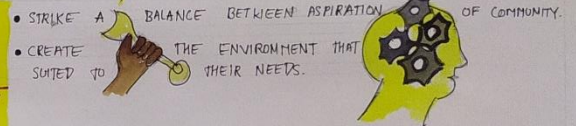 • STRIKE A BALANCE BETWEEN ASPIRATION OF COMMUNITY.
• CREATE THE ENVIRONMENT THAT
SUITED TO THEIR NEEDS.